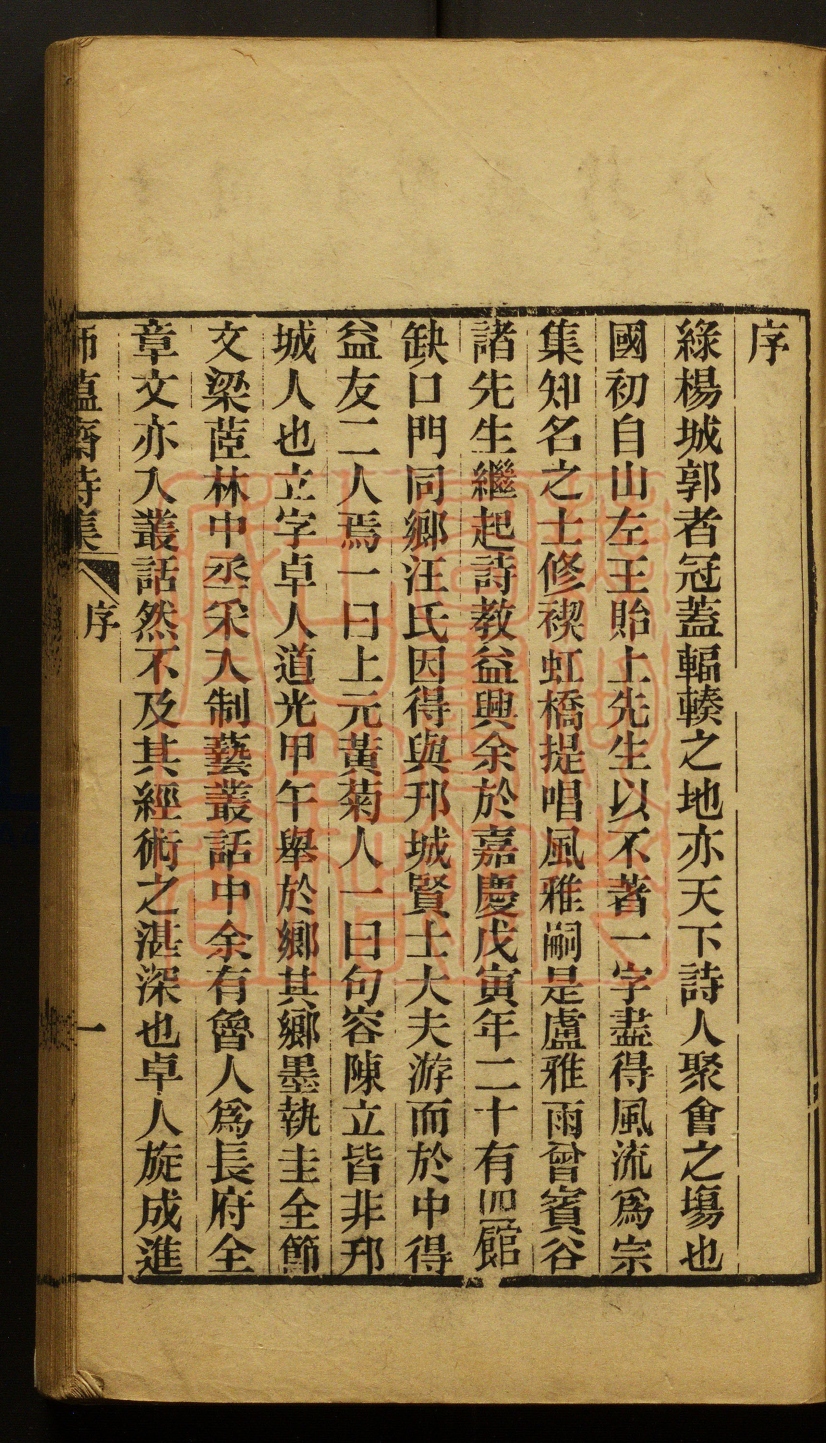 序
綠楊城郭者冠蓋輻輳之地亦天下詩人聚會之塲也
國初自山左王貽上先生以不著一字盡得風流爲宗
集知名之士修禊虹橋提唱風雅嗣是盧雅雨曾賓谷
諸先生繼起詩教益興余於嘉慶戊寅年二十有四館
缺口門同鄉汪氏因得與邗城賢士大夫游而於中得
益友二人焉一曰上元黃菊人一曰句容陳立皆非邗
城人也立字卓人道光甲午舉於鄉其鄉墨執圭全節
文梁茝林中丞采入制藝叢話中余有魯人爲長府全
章文亦入叢話然不及其經術之湛深也卓人旋成進
師蘊齋詩集
序
一